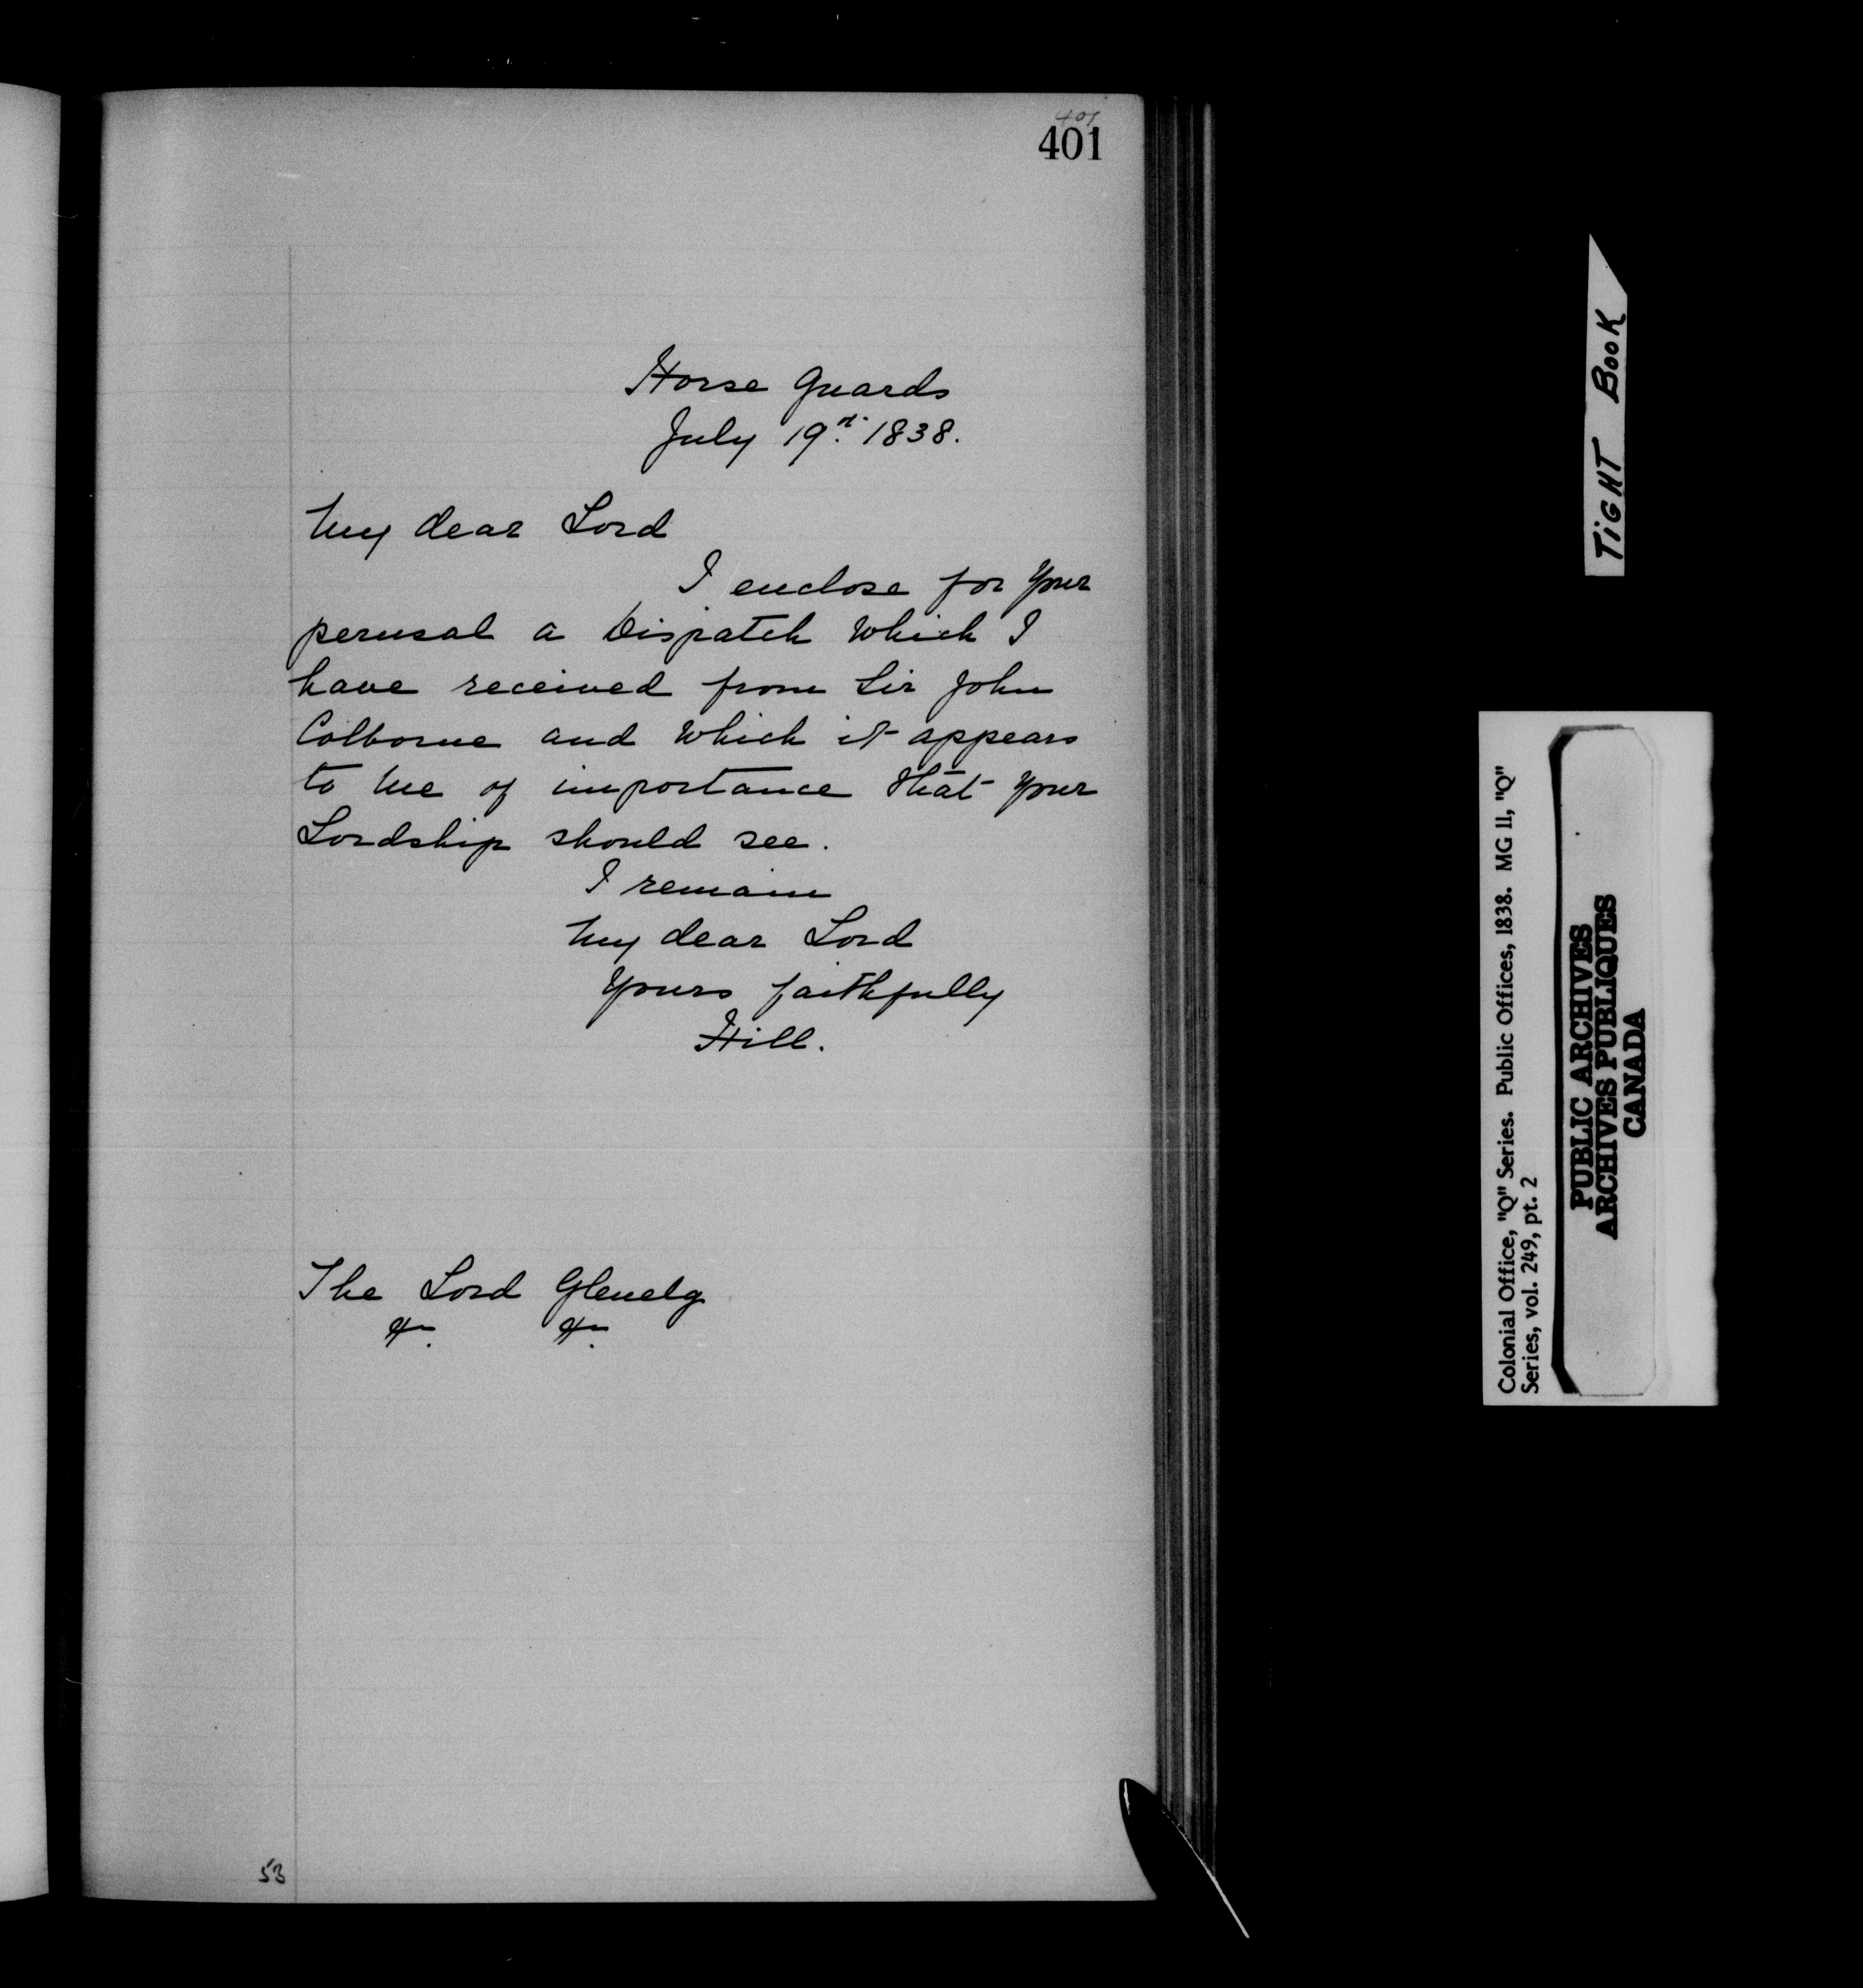 401
401
Horse Guards
July 19th. 1838.
My dear Lord
I enclose for your
perusal a Dispatch which I
have received from Sir John
Colborne and which it appears
to me of importance that your
Lordship should see.
I remain
My dear Lord
Yours faithfully
Hill.
The Lord Glenelg
&c. &c.
53
TIGHT BOOK
Colonial Office, "Q" Series. Public Offices, 1838. MG 11, "Q"
Series, vol. 249, pt. 2
PUBLIC ARCHIVES
ARCHIVES PUBLIQUES
CANADA